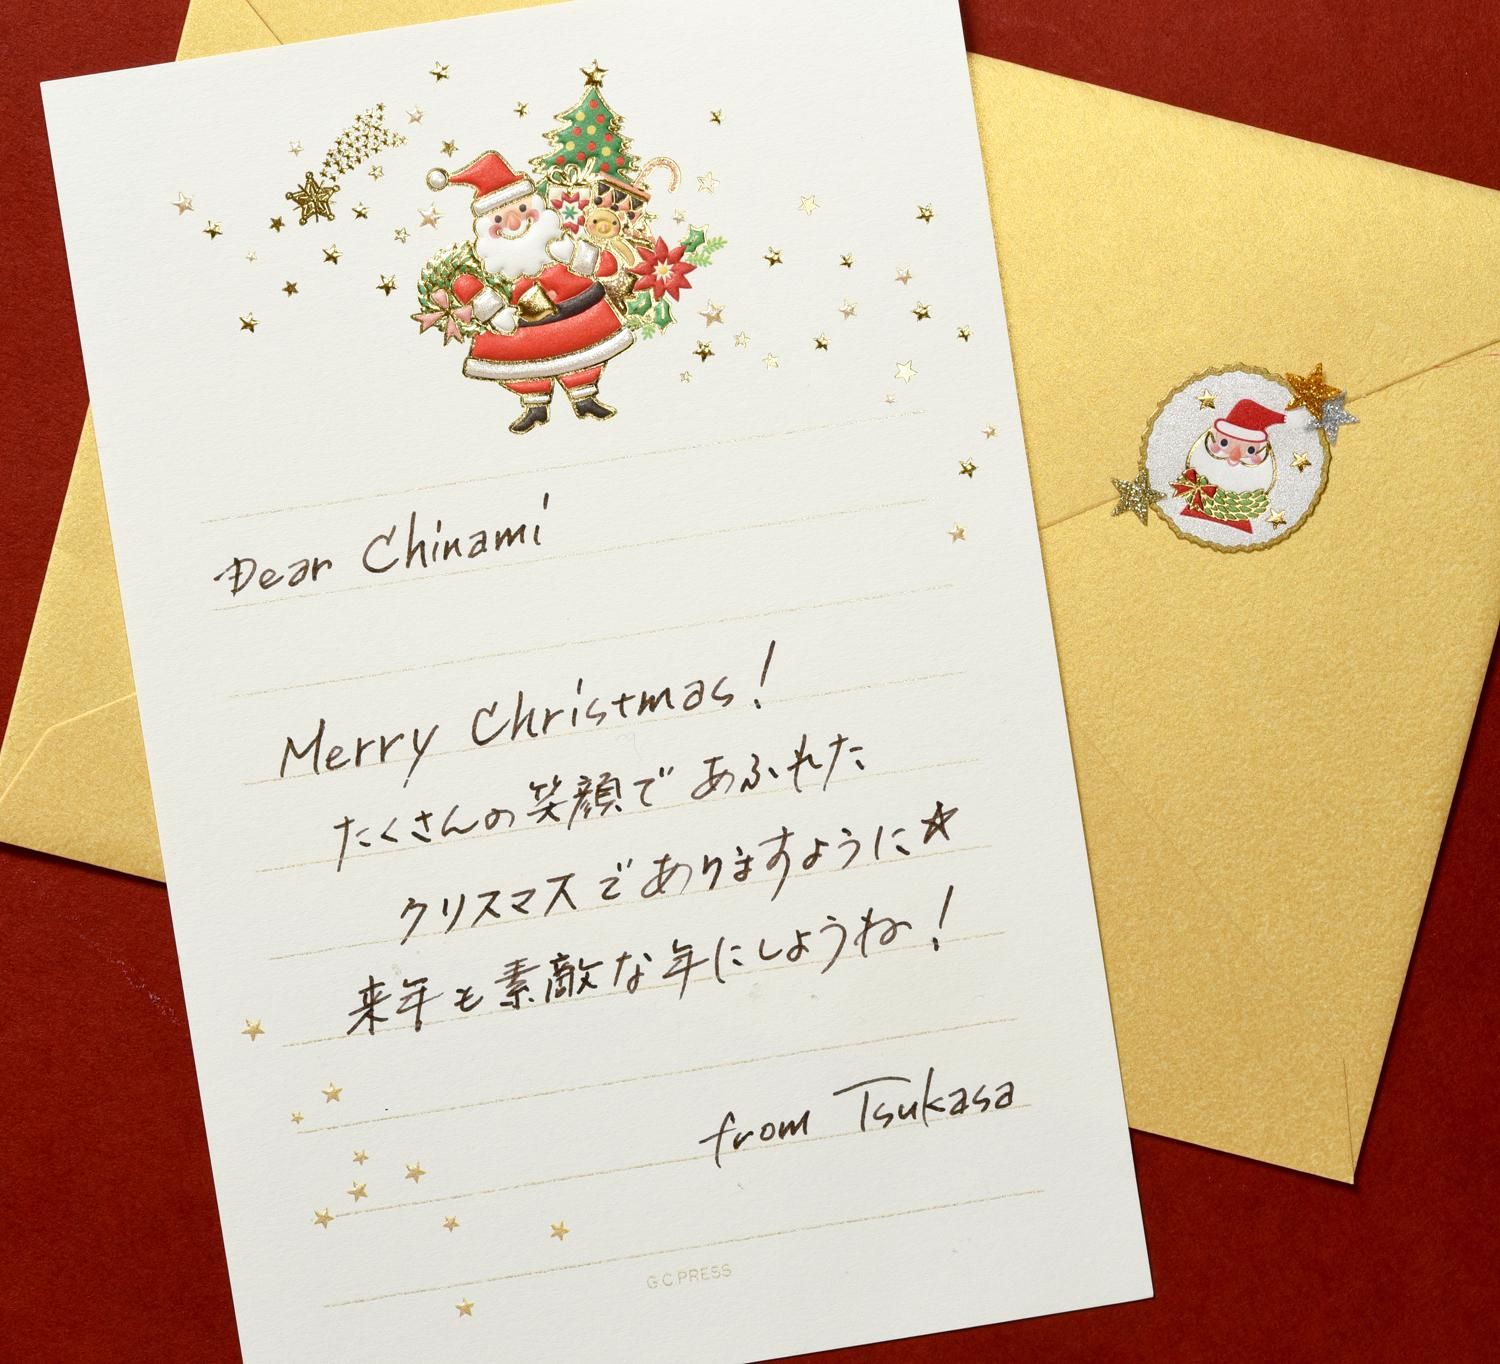 Dear Chinami
Merry Christmas!
たくさんの笑顔であふれた
クリスマスでありますように☆
来年も素敵な年にしようね!
from Tsukasa
G C PRESS